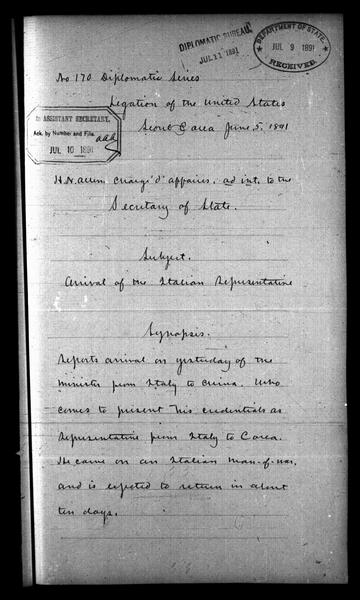 DIPLOMATIC BUREAU
JUL 11 1891
DEPARTMENT OF STATE.
JUL 9 1891
RECEIVED.
No 170 Diplomatic Series
Legation of the United States
Seoul Corea June 5, 1891
2d ASSISTANT SECRETARY,
Ack. by Number and File.
JUL 10 1891
H.N. Allen Chargé d' affaires, ad int. to the
Secretary of State.
Subject.
Arrival of the Italian Representative
Synopsis.
Reports arrival on yesterday of the
Minister from Italy to China. Who
comes to present his credentials as
Representative from Italy to Corea.
He came on an Italian man-of-war,
and is expected to return in about
ten days.